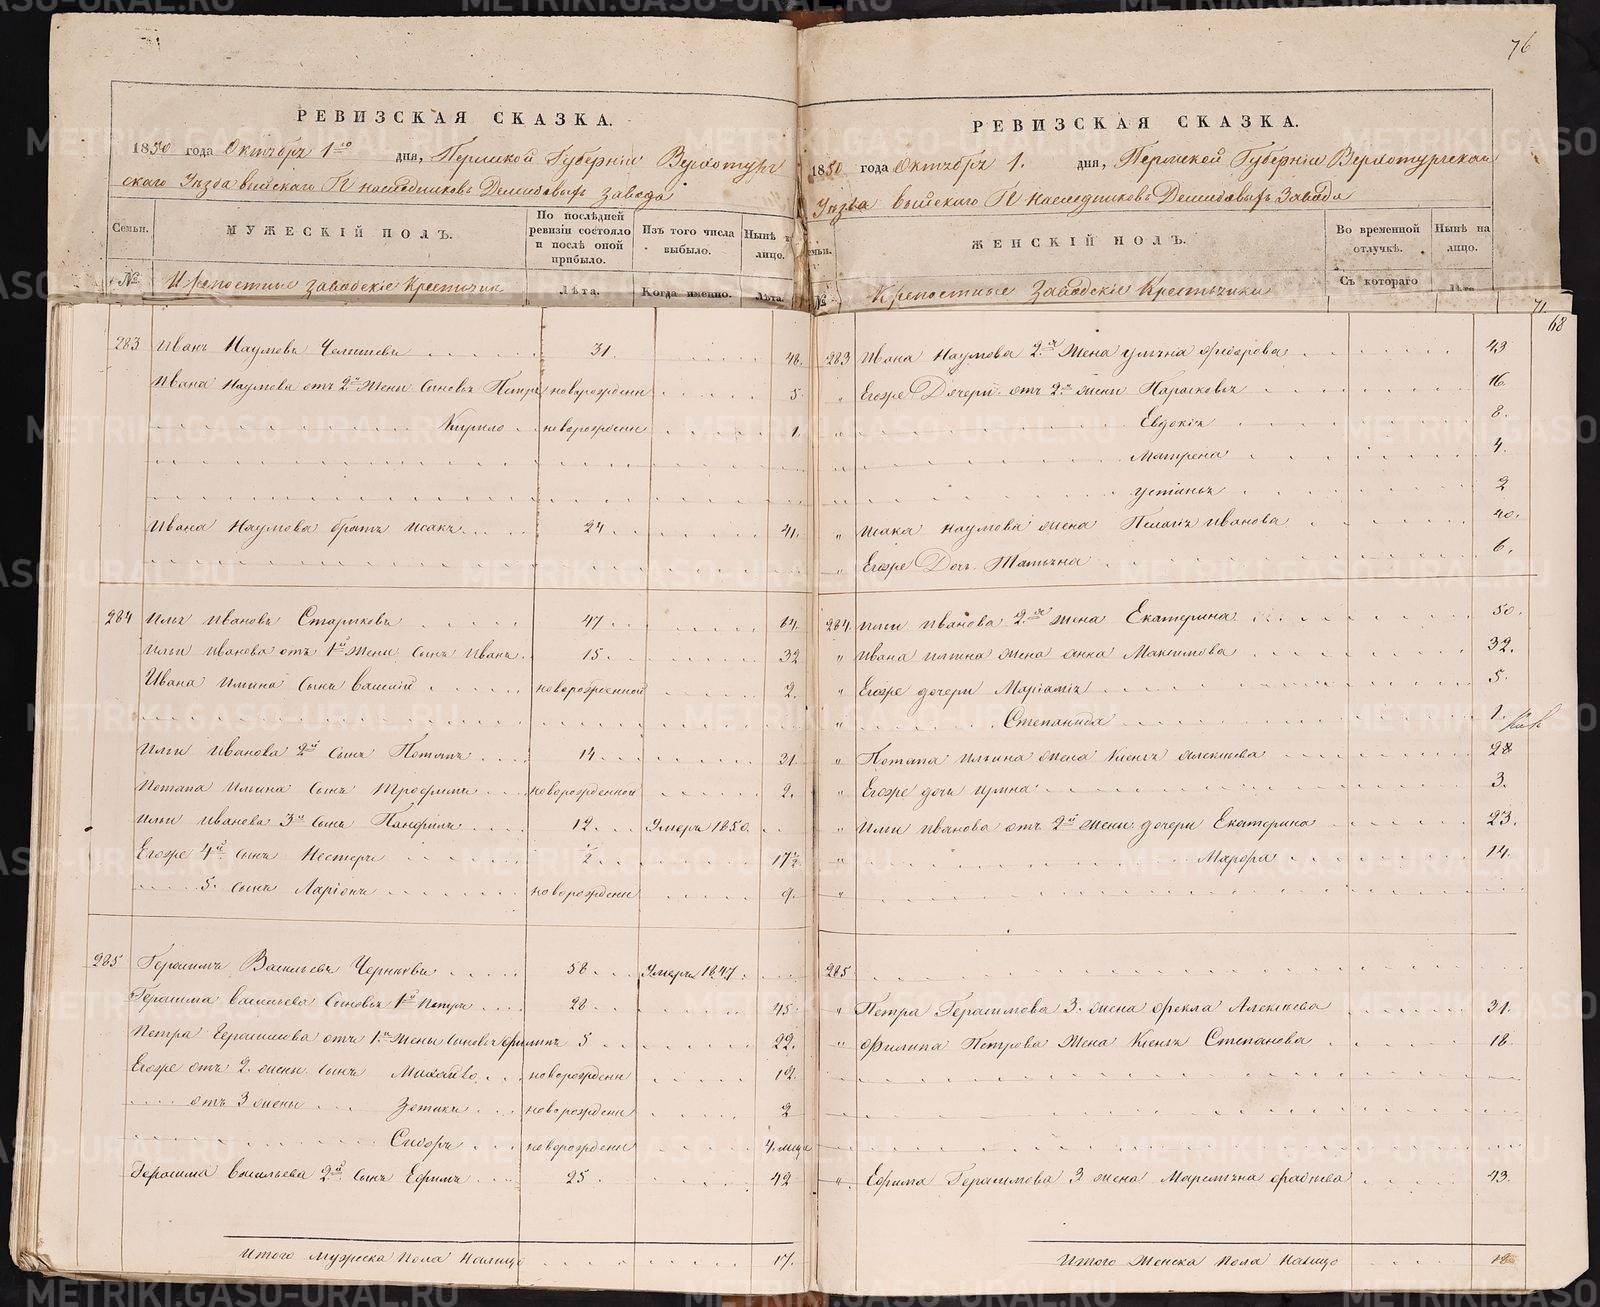 76
РЕВИЗСКАЯ СКАЗКА.
1850 года Октября 1го дня, Пермской Губернии Верхотур
скаго Уѣзда Выйскаго Гг наследниковъ Демидовыхъ завода
Семьи.
МУЖЕСКІЙ ПОЛЪ.
По послѣдней ревизіи состояло и послѣ оной прибыло.
Изъ того числа выбыло.
Нынѣ на лицо.
№
Крепостные заводскіе Крестьяне
Лѣта.
Когда именно.
Лѣта.
283 Иванъ Наумовъ 31 48.
Ивана Наумова отъ 2й Жены Сыновья Петръ новорожденн 5
Кирило новорожденн 1
Ивана Наумова братъ Исакъ 24 41.
284 Илья Ивановъ Стариковъ 47 64.
Ильи Иванова отъ 1й Жены Сынъ Иванъ 15 32
Ивана Ильина Сынъ Василій новорожденной 2.
Ильи Иванова 2й Сынъ Потапъ 14 31
Потапа Ильина Сынъ Трофимъ новорожденной 2.
Ильи Иванова 3й Сынъ Панфилъ 12 Умеръ 1850.
Егоже 4й Сынъ Нестеръ ½ 17½
5. Сынъ Ларіонъ новорожденн 9.
285 Герасимъ Васильевъ 58 Умеръ 1847.
Герасима Васильева Сыновья 1й Петръ 28 45
Петра Герасимова отъ 1й Жены Сыновья Филипъ 5 22.
Егоже отъ 2 жены Сынъ Михайло новорожденн 12.
отъ 3 жены новорожденн 2
Сидоръ новорожденн 4 месяца
Герасима Васильева 2й Сынъ Ефимъ 25 42
Итого Мужеска пола Налицо 17.
РЕВИЗСКАЯ СКАЗКА.
1850 года Октября 1. дня, Пермской Губерніи Верхотурскаго
Уѣзда Выйскаго Гг Наследниковъ Демидовыхъ Завода
Семьи.
ЖЕНСКІЙ ПОЛЪ.
Во временной отлучкѣ.
Нынѣ на лицо.
№
Крепостные Заводскіе Крестьянки
Съ котораго
Лѣта
71.
68
283 Ивана Наумова 2я Жена Федорова 43
" Егоже Дочери отъ 2й жены Парасковья 16.
Евдокія 8.
Матрена 4.
Устинья 2
" Исака Наумова жена Пелагія Иванова 40.
" Егоже Дочь Татьяна 6.
284. Ильи Иванова 2я Жена Екатерина 50.
" Ивана Ильина Жена Анна Максимова 32.
" Егоже дочери Маріамія 5.
" Степанида 1.
" Потапа Ильина Жена Ксенья Алексѣева 28
" Егоже дочь Ирина 3.
" Ильи Иванова отъ 2й Жены дочери Екатерина 23.
" Марфа 14.
"
285
" Петра Герасимова 3. жена Фекла Алексѣева 31.
" Филипа Петрова Жена Ксенья Степанова 18.
" Ефима Герасимова 3 жена Маремьяна 43.
Итого Женска пола Налицо 18
METRIKI.GASO-URAL.RU